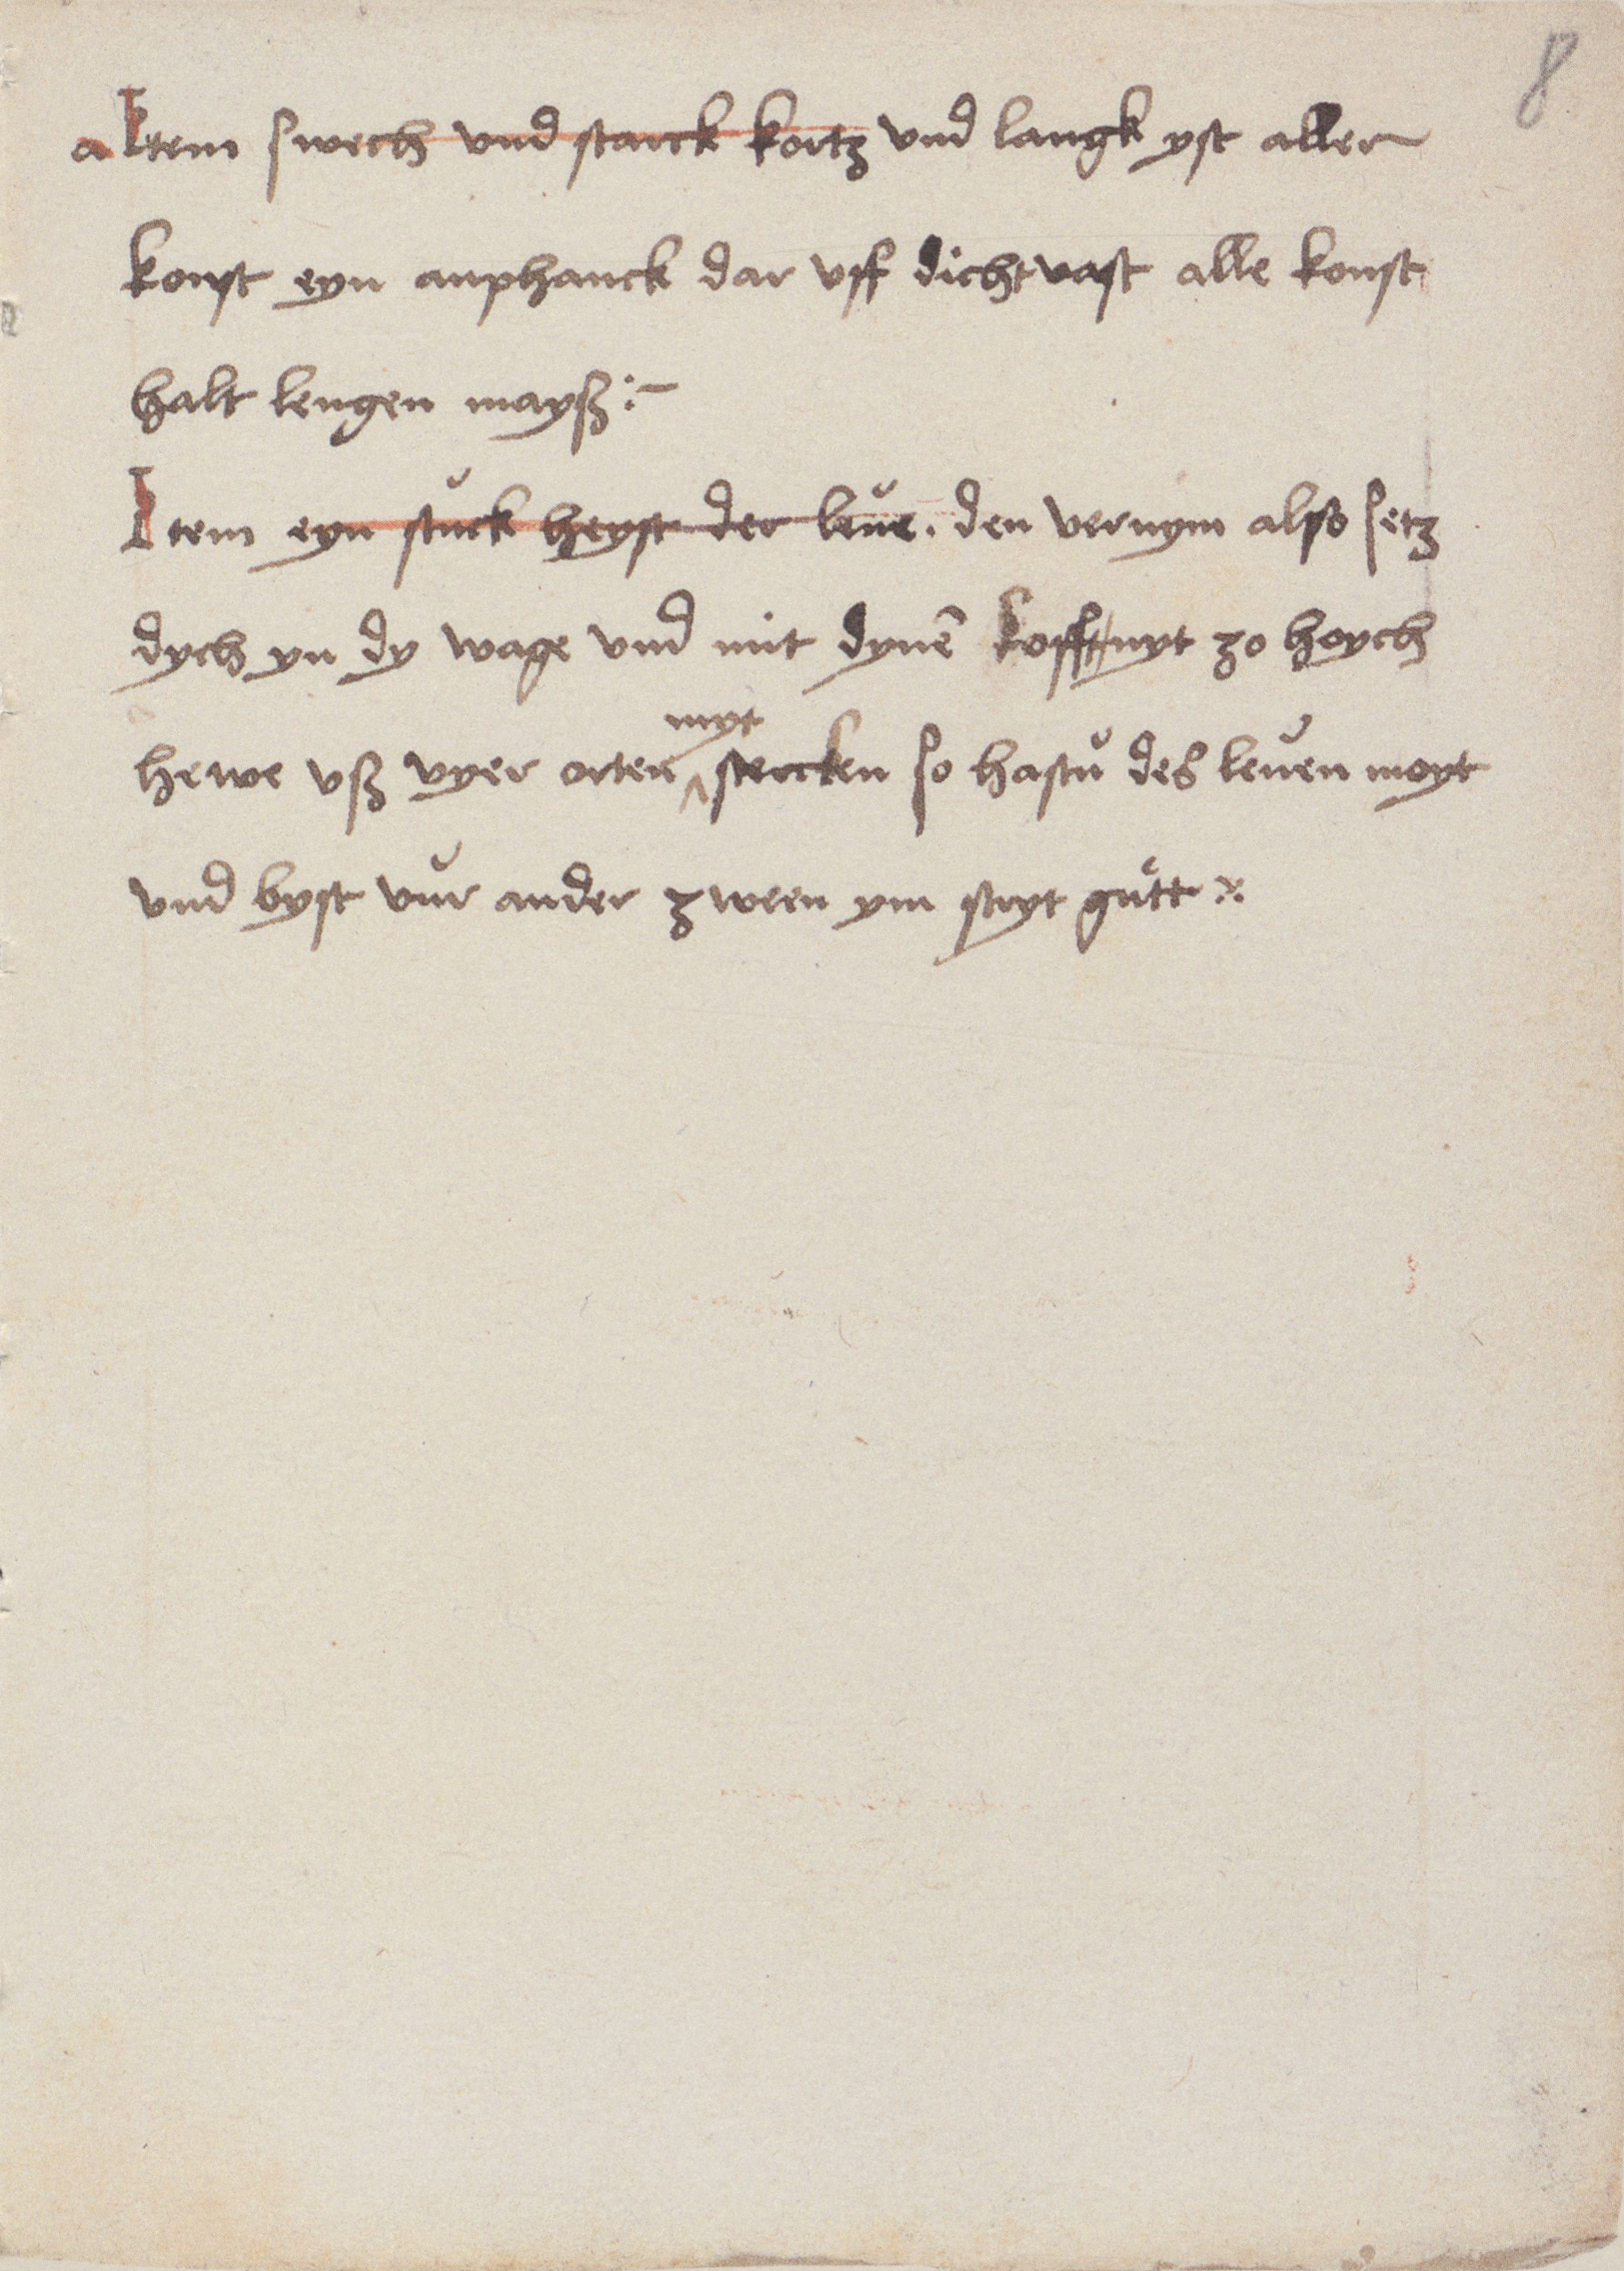 8
a Item swech vnd starck kortz vnd langk yst aller
konst eyn anphanck dar vff dicht vast alle konst
halt lengen mayß :~
Item eyn stůck heyst der leůe . den vernym alßo sitz
dych yn dy wage vnd mit dynē kofft nyt zo hoych
myt
hewe vß vyer orten ^ stercken so hastů des leůen moyt
vnd byst vůr ander zween ym stryt gůtt :~